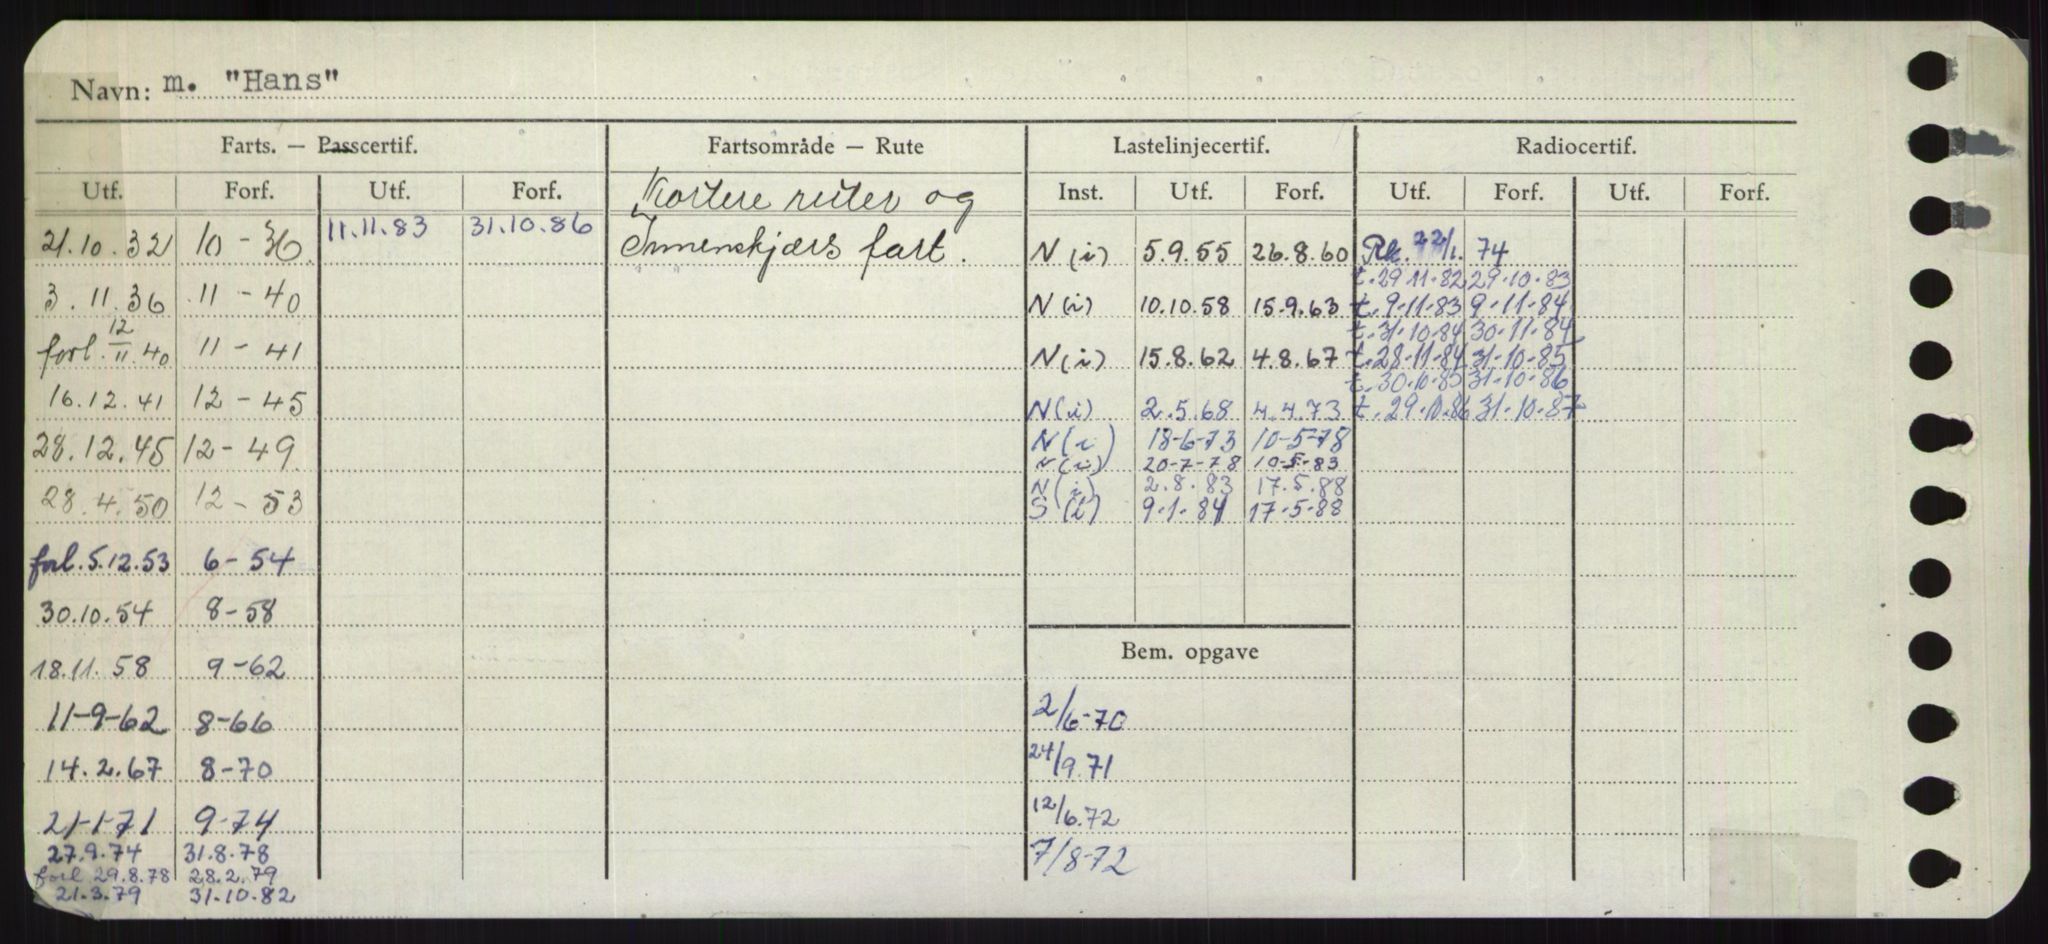 Navn: m. "Hans"
Farts. — Passcertif. Fartsområde — Rute Lastelinjecertif. Radiocertif.
Utf. Forf. Utf. Forf. Kortere ruter og Inst. Utf. Forf. Utf. Forf. Utf. Forf.
21.10.32 10-36 11.11.83 31.10.86 Innenskjærs fart. N(i) 5.9.55 26.8.60 Rk. 22/1. 74
t. 29.11.82 29.10.83
3.11.36 11-40 N(i) 10.10.58 15.9.63 t. 9.11.83 9-11-84
t. 31.10.84 30-11-84
forl. 12/11.40 11-41 N(i) 15.8.62 4.8.67 t. 28-11-84 31-10-85
t. 30.10.85 31-10-86
16.12.41 12-45 N(i) 2.5.68 4.4.73 t. 29.10.86 31-10-87
28.12.45 12-49 N(i) 18-6-73 10-5-78
N(i) 20-7-78 10-5-83
28.4.50 12-53 N(i) 2.8.83 17.5.88
S(i) 9.1.84 17-5-88
forl. 5.12.53 6-54
30.10.54 8-58
Bem. opgave
18.11.58 9-62
11-9-62 8-66 2/6-70
14.2.67 8-70 24/9.71
21-1-71 9-74 12/6.72
27.9.74 31.8.78 7/8-72
forl 29.8.78 28.2.79
21.3.79 31.10.82